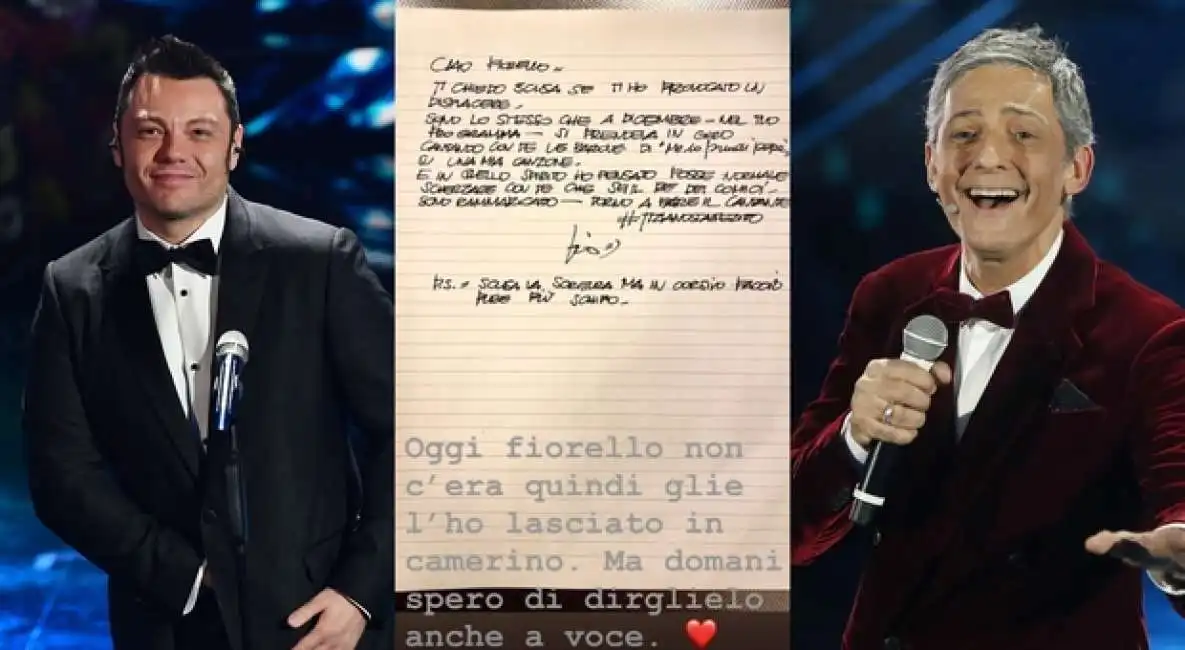 CIAO FIORELLO -
TI CHIEDO SCUSA SE TI HO PROVOCATO UN
DISPIACERE -
SONO LO STESSO CHE A DICEMBRE - NEL TUO
PROGRAMMA - SI PRENDEVA IN GIRO
CANTANDO CON TE LE BARQUE DI "Me lo prendi papà"
SU UNA MIA CANZONE.
E IN QUELLO SPIRITO HO PENSATO FOSSE NORMALE
SCHERZARE CON TE CHE SEI IL RE DEI COMICI -
SONO RAMMARICATO - TORNO A FARE IL CANTANTE
#TIZIANOSTAIZITTO
P.S. = SCUSA LA SCRITTURA MA IN CORSIVO FACCIO
PURE PIÙ SCHIFO -
Oggi fiorello non
c'era quindi glie
l'ho lasciato in
camerino. Ma domani
spero di dirglielo
anche a voce. ❤️